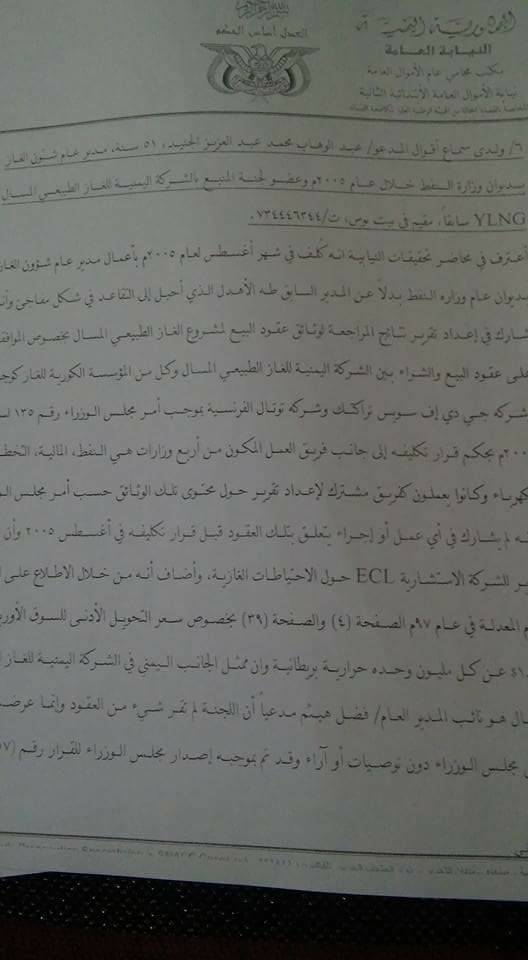 بسم الله الرحمن الرحيم
العدل أساس الحكم
الجمهورية اليمنية
النيابة العامة
مكتب محامي عام الأموال العامة
نيابة الأموال العامة الابتدائية الثانية
٦/ ولدى سماع أقوال المدعو/ عبد الوهاب محمد عبد العزيز الجنيد، ٥١ سنة، مدير عام شئون الغاز
بديوان وزارة النفط خلال عام ٢٠٠٥م وعضو لجنة المتبع بالشركة اليمنية للغاز الطبيعي المسال
YLNG سابقاً، مقيم في بيت بوس، ت/٧٣٤٤٤٦٣٤٤ .
أعترف في محاضر تحقيقات النيابية انه كُلف في شهر أغسطس لعام ٢٠٠٥م بأعمال مدير عام شؤون الغاز
ديوان عام وزاره النفط بدلاً عن المدير السابق طه الأهدل الذي أحيل إلى التقاعد في شكل مفاجئ
شارك في إعداد تقرير نتائج المراجعة لوثائق عقود البيع لمشروع الغاز الطبيعي المسال بخصوص
على عقود البيع والشراء بين الشركة اليمنية للغاز الطبيعي المسال وكل من المؤسسة الكورية للغاز
شركه جي دي إف سويس تراكتك وشركه توتال الفرنسية بموجب أمر مجلس الوزراء رقم ١٣٥
بحكم قرار تكليفه إلى جانب فريق العمل المكون من أربع وزارات هي النفط، المالية،
وكانوا يعملون كفريق مشترك لإعداد تقرير حول محتوى تلك الوثائق حسب أمر مجلس
لم يشارك في أي عمل أو إجراء يتعلق بتلك العقود قبل قرار تكليفه في أغسطس ٢٠٠٥ وأن
للشركة الاستشارية ECL حول الاحتياطات الغازية، وأضاف أنه من خلال الاطلاع على
المعدلة في عام ٩٧م الصفحة (٤) والصفحة (٣٩) بخصوص سعر التحويل الأدنى للسوق
عن كل مليون وحده حرارية بريطانية وان ممثل الجانب اليمني في الشركة اليمنية للغاز
هو نائب المدير العام/ فضل هيثم مدعياً أن اللجنة لم تقر شيء من العقود وإنما
مجلس الوزراء دون توصيات أو آراء وقد تم بموجبه إصدار مجلس الوزراء للقرار رقم